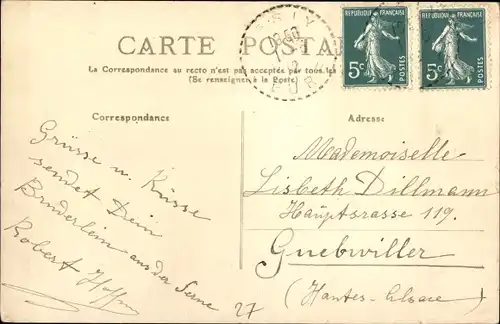 CARTE POSTALE
La Correspondance au recto n'est pas acceptée par tous les
(Se renseigner à la Poste)
REPUBLIQUE FRANÇAISE
5c POSTES
REPUBLIQUE FRANÇAISE
5c POSTES
Correspondance
Grüsse u. Küsse
sendet Dein
Brüderlein aus der Ferne
Robert
27
Adresse
Mademoiselle
Lisbeth Dillmann
Hauptsrasse 119.
Guebwiller
(Hautes-Alsace)